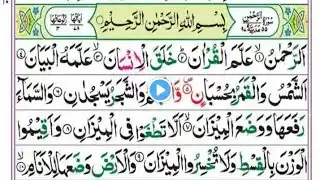 بِسْمِ اللهِ الرَّحْمٰنِ الرَّحِيْمِ
اَلرَّحْمٰنُ ۙ عَلَّمَ الْقُرْاٰنَ ؕ خَلَقَ الْاِنْسَانَ ۙ عَلَّمَهُ الْبَيَانَ
اَلشَّمْسُ وَالْقَمَرُ بِحُسْبَانٍ ۪ وَّالنَّجْمُ وَالشَّجَرُ يَسْجُدَانِ وَالسَّمَآءَ
رَفَعَهَا وَوَضَعَ الْمِيْزَانَ ۙ اَلَّا تَطْغَوْا فِى الْمِيْزَانِ وَاَقِيْمُوا
الْوَزْنَ بِالْقِسْطِ وَلَا تُخْسِرُوا الْمِيْزَانَ وَالْاَرْضَ وَضَعَهَا لِلْاَنَامِ